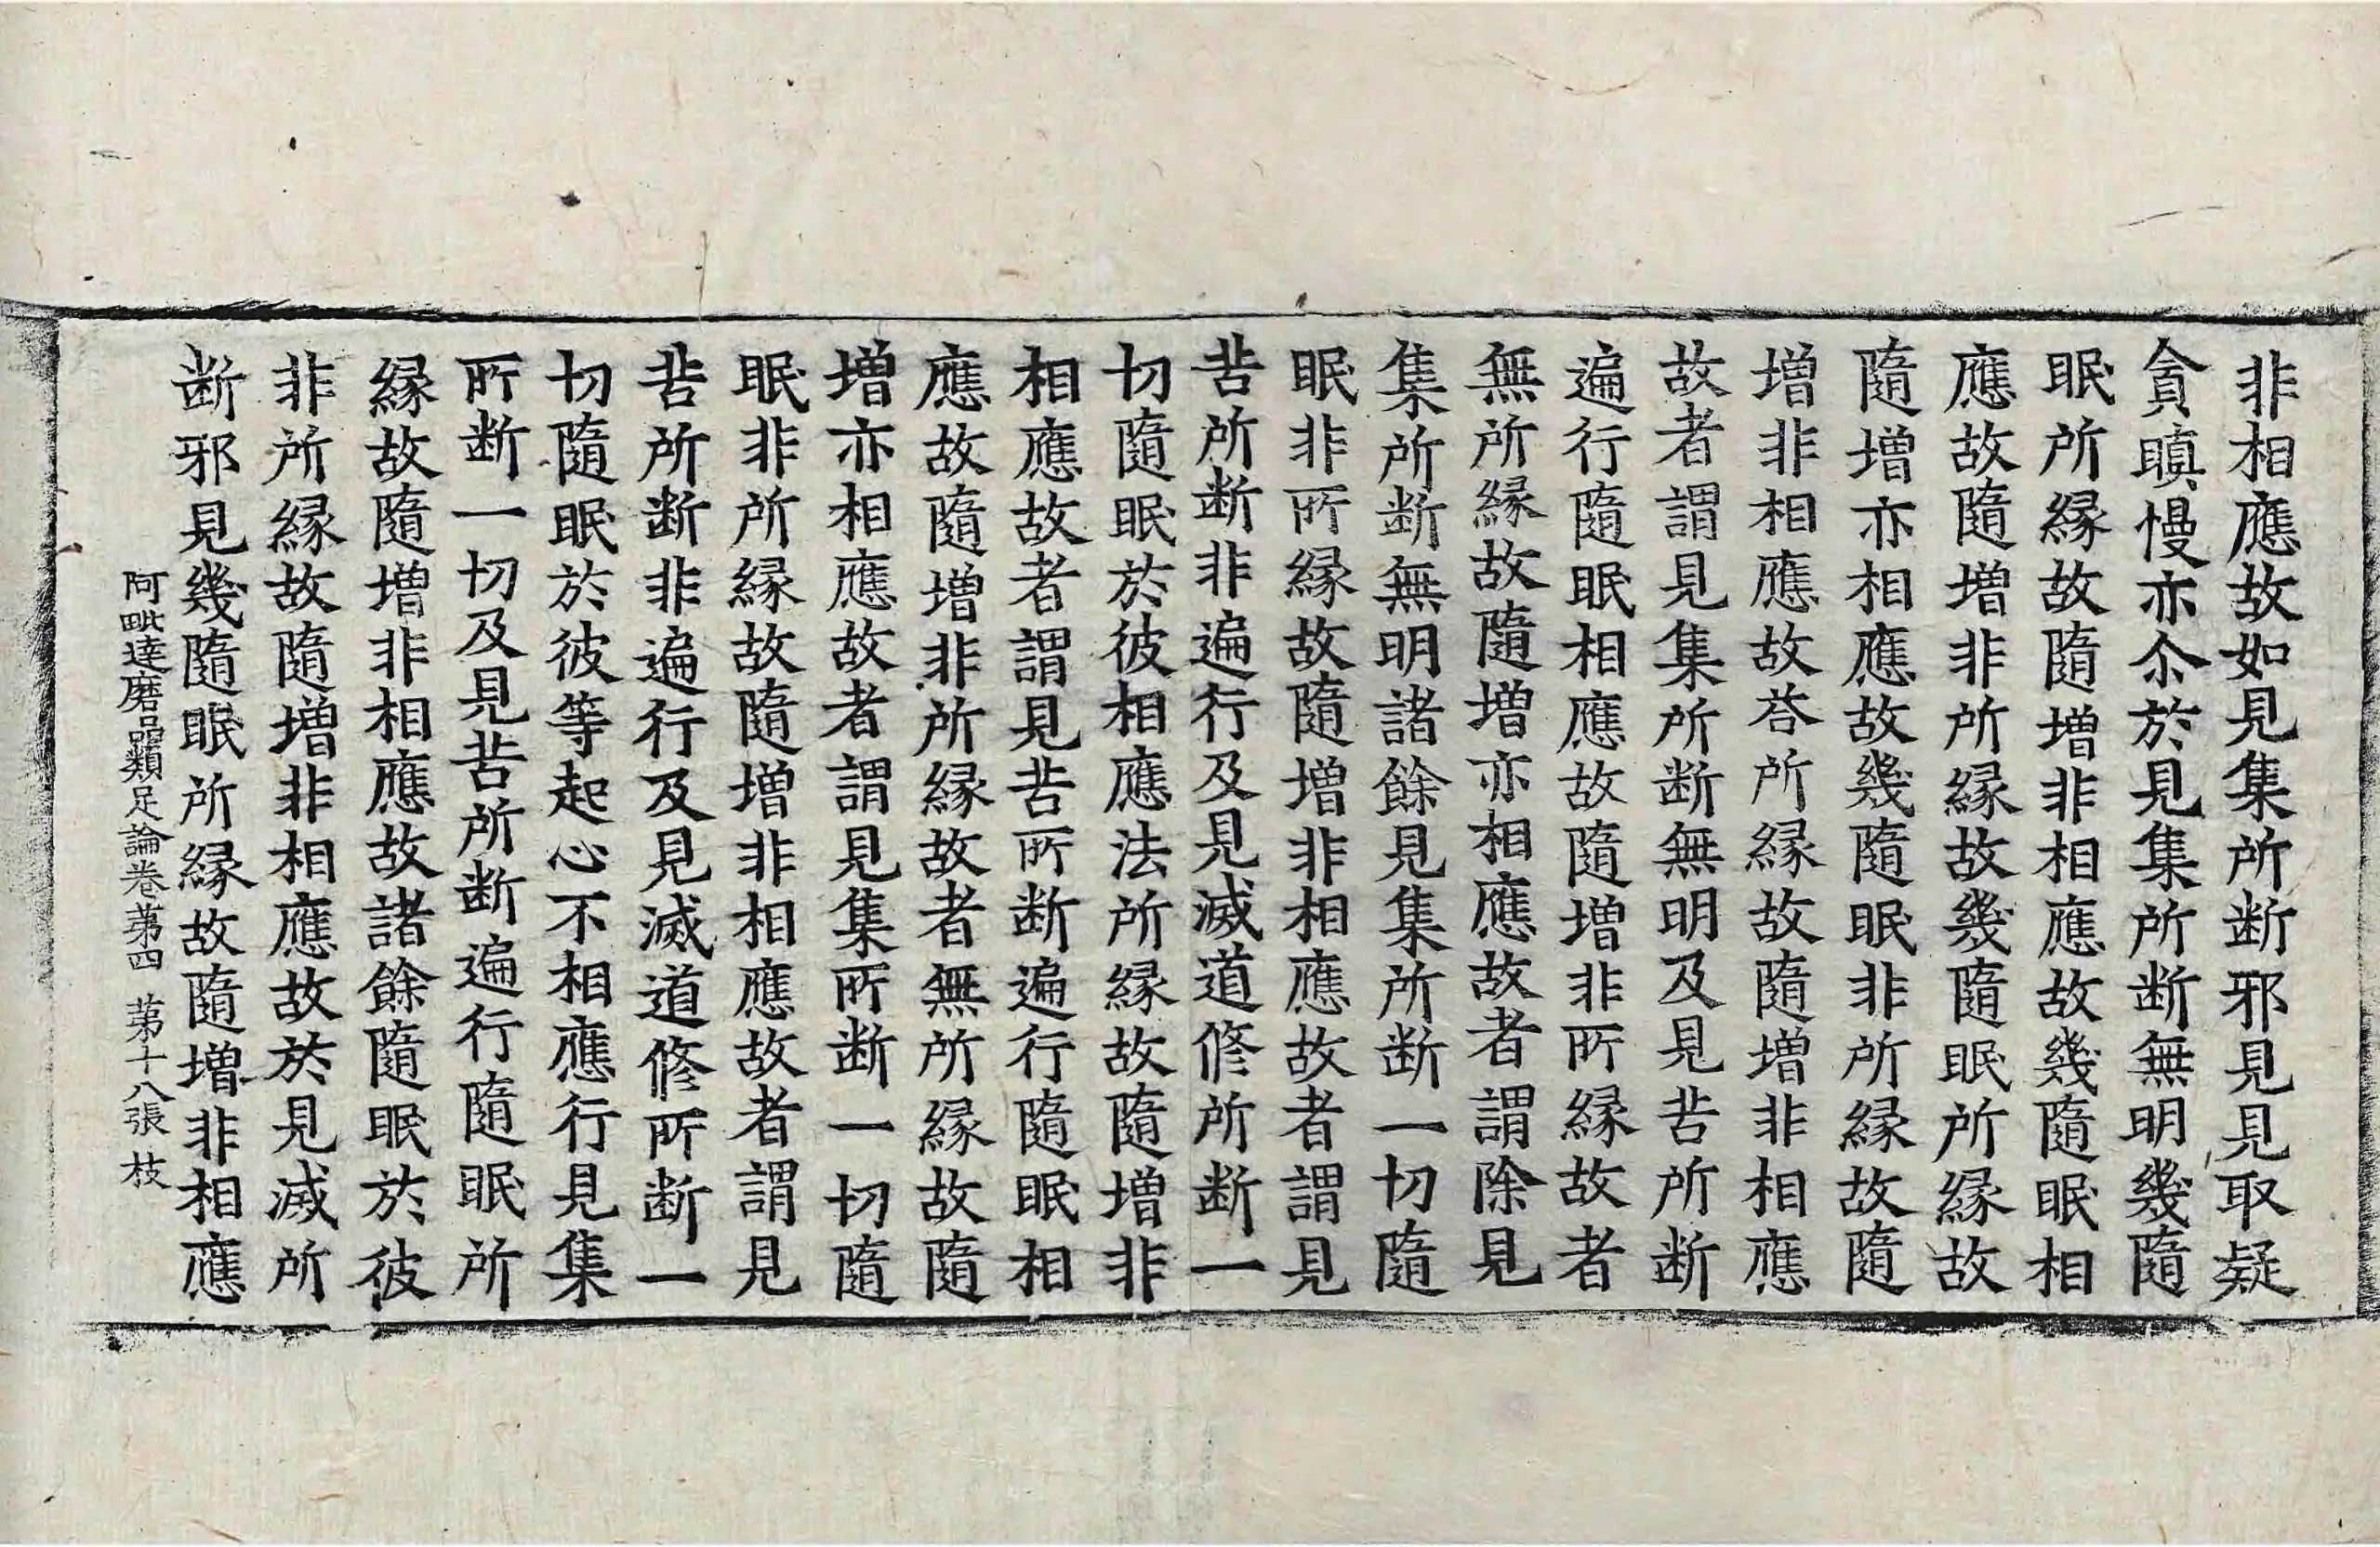 非相應故如見集所断邪見見取疑
貪瞋慢亦尒於見集所断無明幾隨
眠所縁故隨增非相應故幾隨眠相
應故隨增非所縁故幾隨眠所縁故
隨增亦相應故幾隨眠非所縁故隨
增非相應故荅所縁故隨增非相應
故者謂見集所断無明及見苦所断
遍行隨眠相應故隨增非所縁故者
無所縁故隨增亦相應故者謂除見
集所断無明諸餘見集所断一切隨
眠非所縁故隨增非相應故者謂見
苦所断非遍行及見滅道修所断一
切隨眠於彼相應法所縁故隨增非
相應故者謂見苦所断遍行隨眠相
應故隨增非所縁故者無所縁故隨
增亦相應故者謂見集所断一切隨
眠非所縁故隨增非相應故者謂見
苦所断非遍行及見滅道修所断一
切隨眠於彼等起心不相應行見集
所断一切及見苦所断遍行隨眠所
縁故隨增非相應故諸餘隨眠於彼
非所縁故隨增非相應故於見滅所
断邪見幾隨眠所縁故隨增非相應
阿毗達磨品類足論卷第四 第十八張 枝